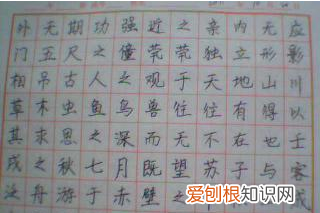 外无期功强近之亲内无应
门五尺之僮茕茕独立形影
相吊古人之观于天地山川
草木虫鱼鸟兽往往有得以
其求思之深而无不在也壬
戌之秋七月既望苏子与客
泛舟游于赤壁之
爱刨根知识网